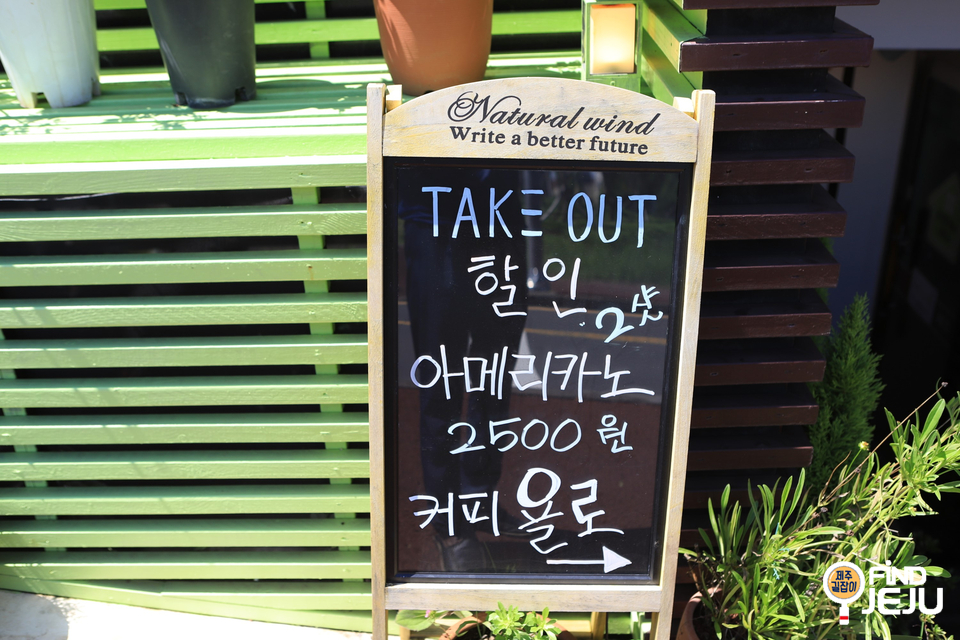 Natural wind
Write a better future
TAKE OUT
할인
2샷
아메리카노
2500원
커피 욜로
→
제주
길잡이
FIND
JEJU